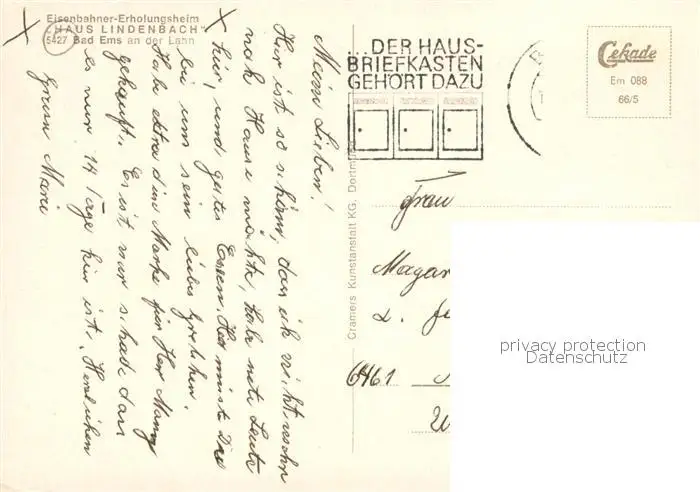 Eisenbahner-Erholungsheim
„HAUS LINDENBACH“
5427 Bad Ems an der Lahn
Meine Lieben!
Hier ist es schön, das ich nicht mehr
nach Hause möchte, habe nette Leute
hier, und gutes Essen. Das müsste
bei uns sein liebes Gretchen.
Habe extra die Marke für Herr Mann
gekauft. Es ist nur schade dass
es nur 14 Tage hier ist. Herzlichen
Gruss Marie
...DER HAUS-
BRIEFKASTEN
GEHÖRT DAZU
Cekade
Em 088
66/5
Cramers Kunstanstalt KG, Dortmund
Frau
Magar
6461
privacy protection
Datenschutz